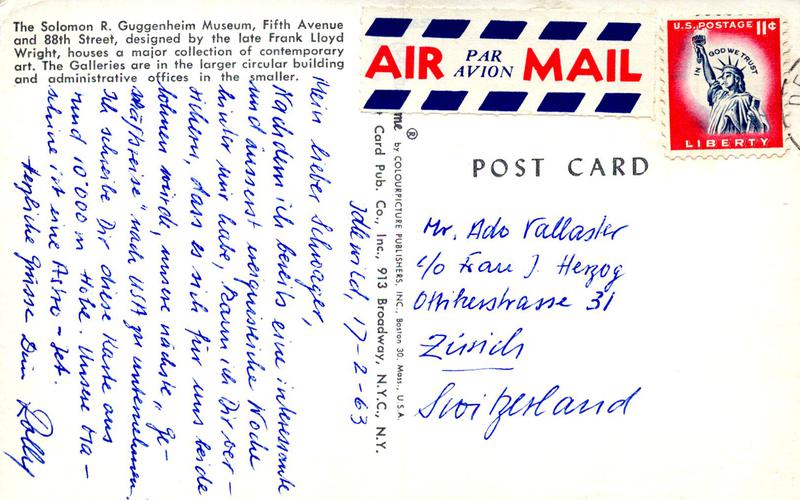 The Solomon R. Guggenheim Museum, Fifth Avenue
and 88th Street, designed by the late Frank Lloyd
Wright, houses a major collection of contemporary
art. The Galleries are in the larger circular building
and administrative offices in the smaller.
AIR PAR AVION MAIL
U.S. POSTAGE 11¢
IN GOD WE TRUST
LIBERTY
POST CARD
® by COLOURPICTURE PUBLISHERS, INC., Boston 30, Mass., U.S.A.
Card Pub. Co., Inc., 913 Broadway, N.Y.C., N.Y.
Idlewild, 17-2-63
Mein lieber Schwager,
Nachdem ich bereits eine interessante
und äusserst ereignisreiche Woche
hinter mir habe, kann ich Dir ver-
sichern, dass es sich für uns beide
lohnen wird, unsere nächste „Ge-
schäftsreise" nach USA zu unternehmen.
Ich schreibe Dir diese Karte aus
rund 10'000 m Höhe. Unsere Ma-
schine ist eine Astro-Jet.
Herzliche Grüsse Dein
Mr. Ado Vallaster
c/o Frau J. Herzog
Ottikerstrasse 31
Zürich
Switzerland